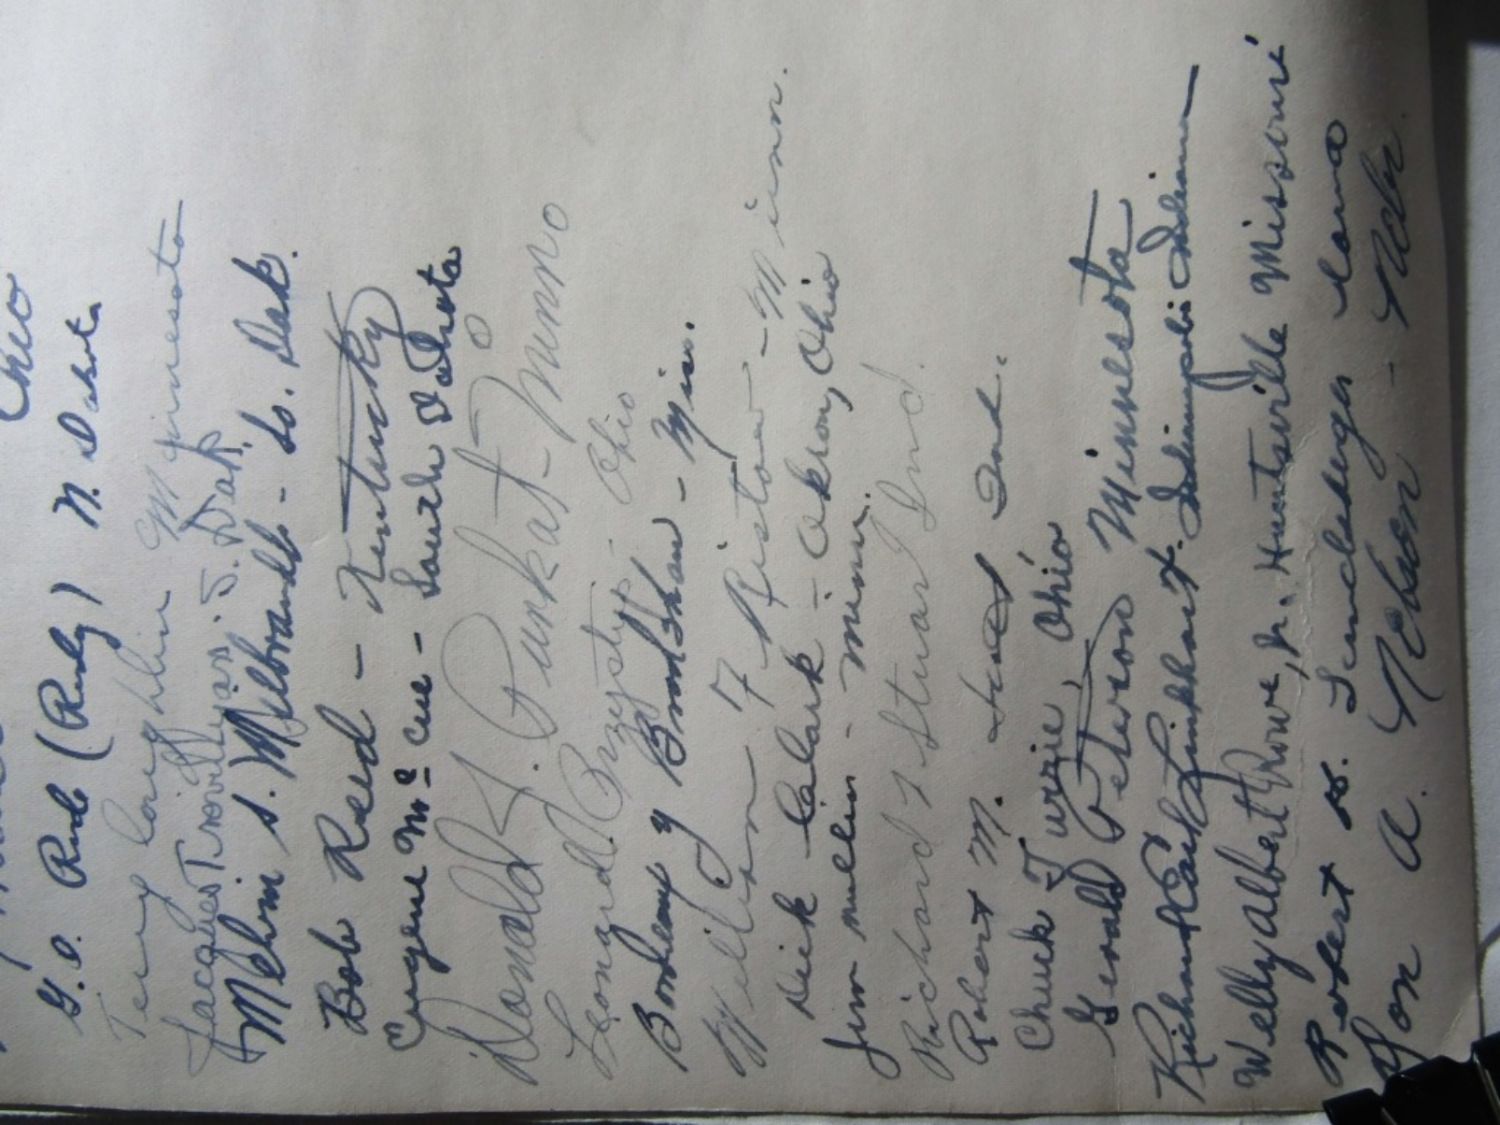 Ohio
G.O. Rud (Rudy) N. Dakota
Terry Loughlin Minnesota
Jacques Trovillyian S. Dak.
Melvin S. Melbrandt - So. Dak.
Bob Reed - Kentucky
Eugene McCue - South Dakota
Donald J. Punkat - Minn
Leonard Przystup Ohio
Bradshaw - Miss.
William F Ristow - Minn.
Dick Clark - Akron, Ohio
Jim Mullin - Minn.
Richard J Stuart Ind.
Robert M. Ind.
Chuck Turzie, Ohio
Gerald Peterson Minnesota
Richard Earl Linkhart. Indianapolis Indiana
Welly Albert Rowe, Jr. Huntsville Missouri
Robert W. Iowa
Don A. Nelson - Nebr.